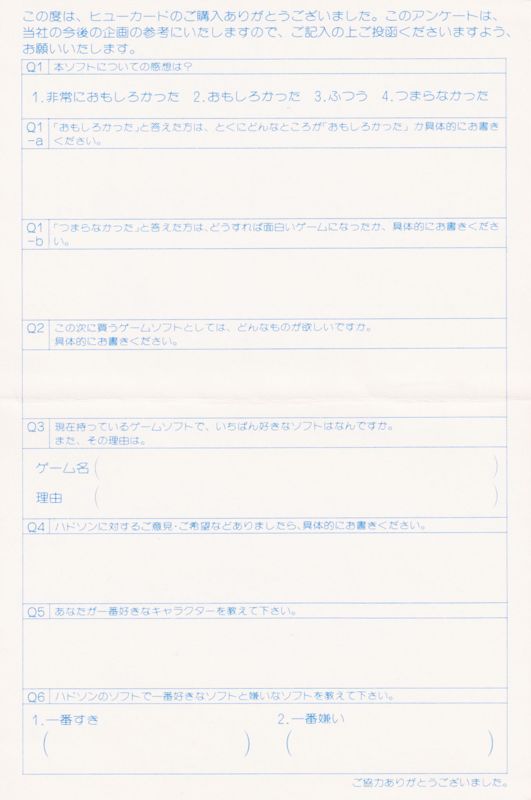 この度は、ヒューカードのご購入ありがとうございました。このアンケートは、
当社の今後の企画の参考にいたしますので、ご記入の上ご投函くださいますよう、
お願いいたします。
Q1 本ソフトについての感想は？
1.非常におもしろかった 2.おもしろかった 3.ふつう 4.つまらなかった
Q1-a 「おもしろかった」と答えた方は、とくにどんなところが「おもしろかった」か具体的にお書き
ください。
Q1-b 「つまらなかった」と答えた方は、どうすれば面白いゲームになったか、具体的にお書きくださ
い。
Q2 この次に買うゲームソフトとしては、どんなものが欲しいですか。
具体的にお書きください。
Q3 現在持っているゲームソフトで、いちばん好きなソフトはなんですか。
また、その理由は。
ゲーム名( )
理由 ( )
Q4 ハドソンに対するご意見・ご希望などありましたら、具体的にお書きください。
Q5 あなたが一番好きなキャラクターを教えて下さい。
Q6 ハドソンのソフトで一番好きなソフトと嫌いなソフトを教えて下さい。
1.一番すき 2.一番嫌い
( ) ( )
ご協力ありがとうございました。